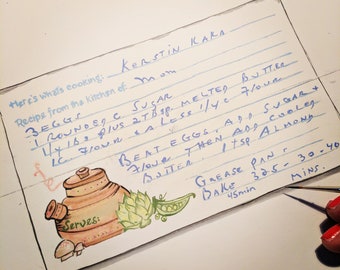 Here's what's cooking: KERSTIN KARR
Recipe from the kitchen of Mom
3 EGGS
1 ROUNDED C SUGAR
1/4 LBS PLUS 2 TBSP MELTED BUTTER
1 C FLOUR & LESS 1/4 C FLOUR
BEAT EGGS, ADD SUGAR &
FLOUR THEN ADD COOLED
BUTTER 1 TSP ALMOND
GREASE PAN &
BAKE 325 - 30-40
45min MINS.
Serves: